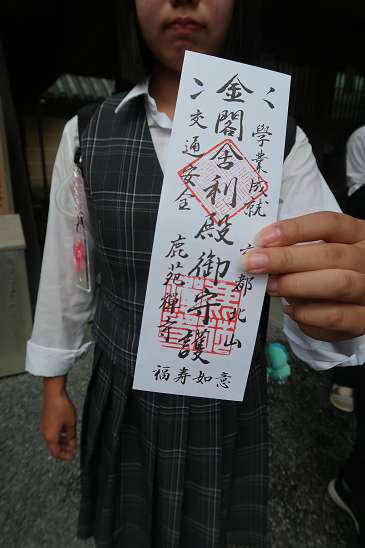 學業成就
京都北山
金閣舎利殿御守護
交通安全
鹿苑禅寺
福寿如意